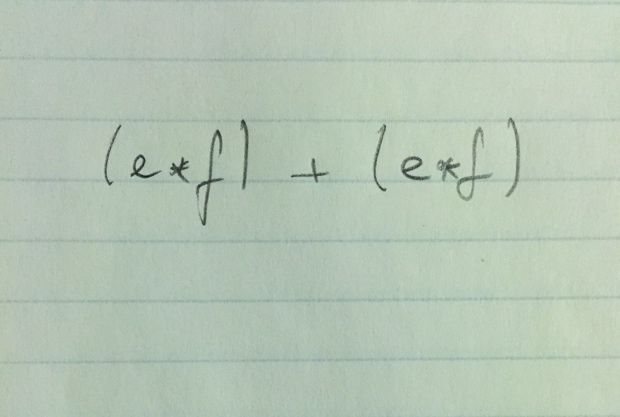 (e*f) + (e*f)